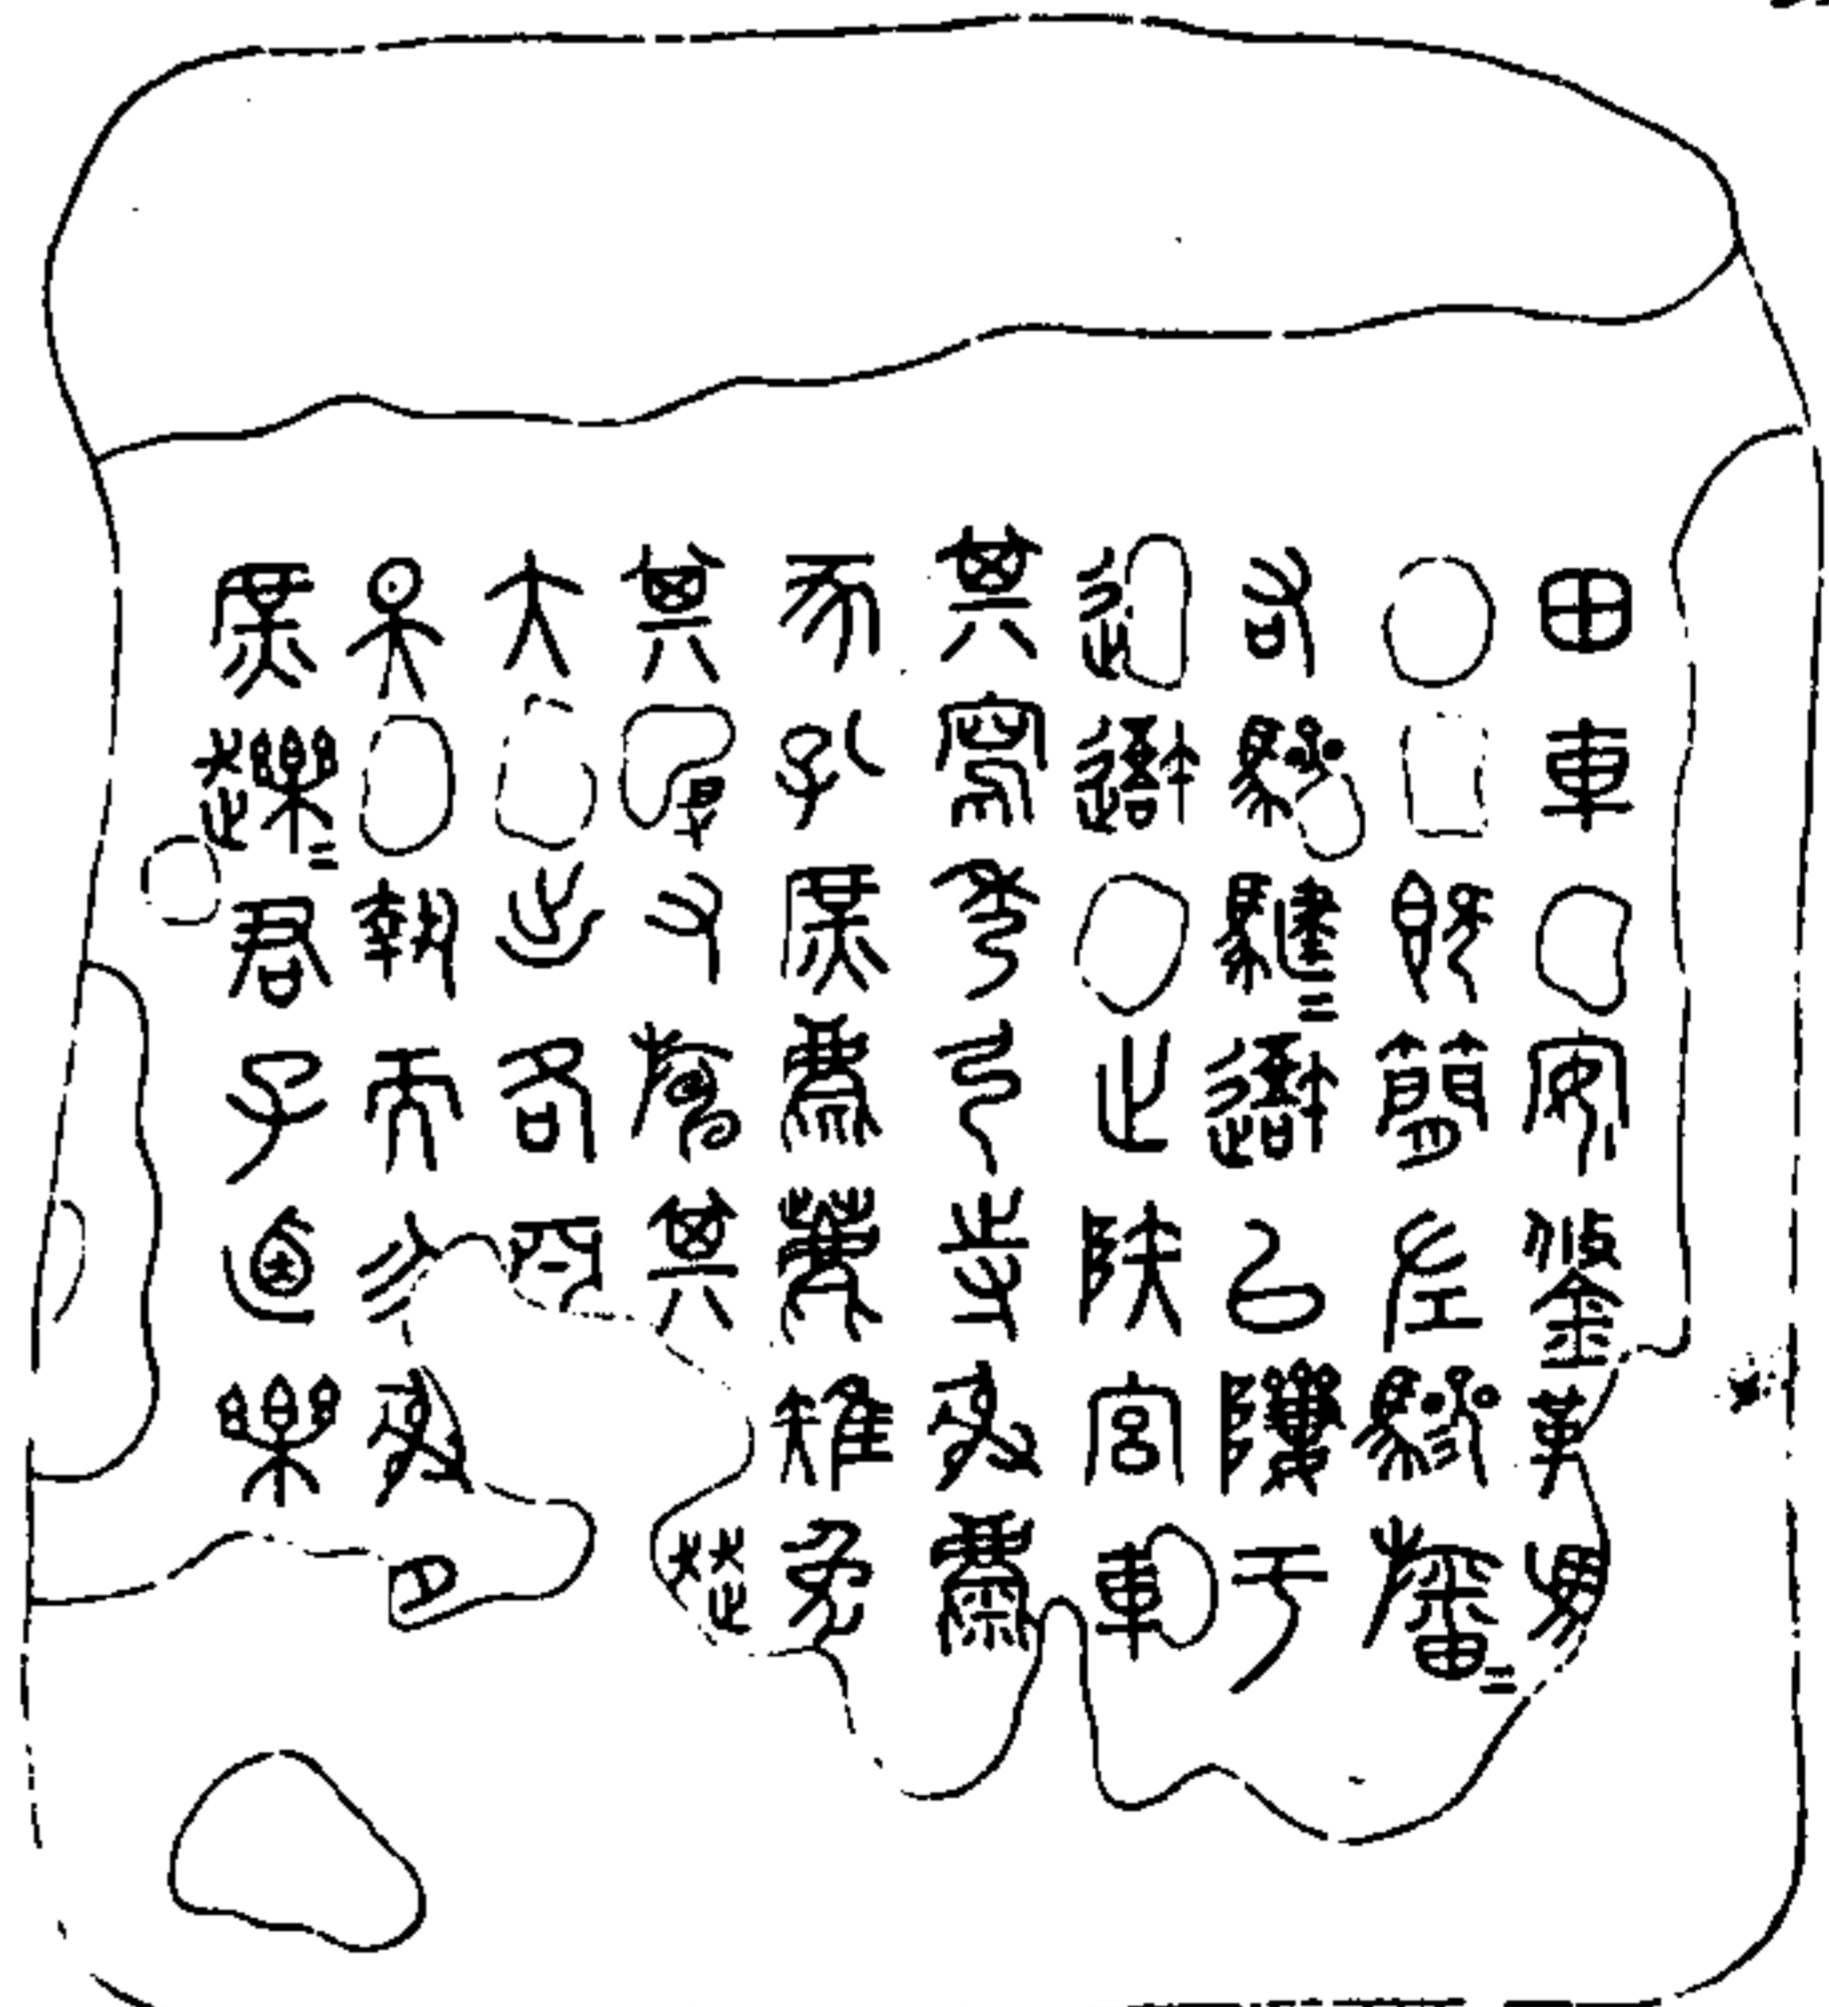 田車安鋚勒馬
既簡左驂旛〓
右驂騝〓𨖍㠯隮于
邍𨖍止陝宮車
其寫秀弓寺射麋
豕孔庶麀鹿雉兔
其又旃其
大出各亞
昊執而勿射多
庶趯〓君子逌樂